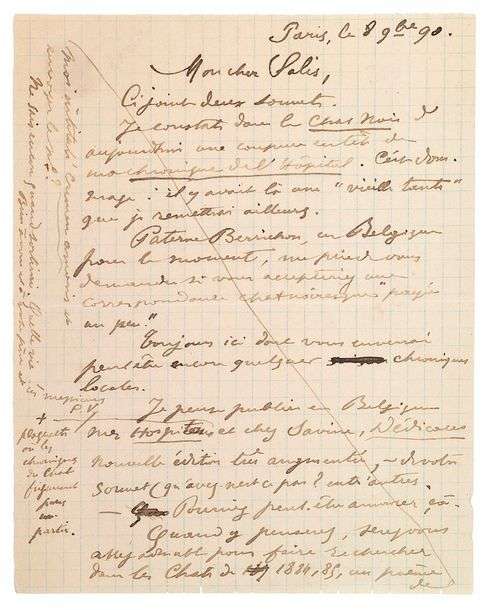 Paris, le 8 9bre 90.
Mon cher Salis,
Ci joint deux sonnets.
Je constate dans le Chat Noir d'
aujourd'hui une coupure entête de
ma chronique de l'Hôpital. C'est dom-
mage : il y avait là une "vieille tante"
que je remettrai ailleurs.
Paterne Berrichon, en Belgique
pour le moment, me prie de vous
demander si vous accepteriez une
correspondance chatnoiresque "payée
un peu."
Toujours ici dont vous enverrai
peut-être encore quelques chroniques
locales.
Je pense publier en Belgique
mes Hospitaux et chez Savine, Dédicaces
nouvelle édition très augmentée, de votre
sonnet (qu'avez n'est-ce pas ? entr'autres.
— Pourriez peut-être annoncer ça.
Quand y penserez, serez vous
assez aimable pour faire rechercher
dans les Chats de 1884, 85, un poème
de
envoyer le n° ?
Ne sais encore quand sortirai. Quelle vie
messieurs
P.V.
+
plaquette
où les
chroniques
du Chat
figureront
pour
partie.